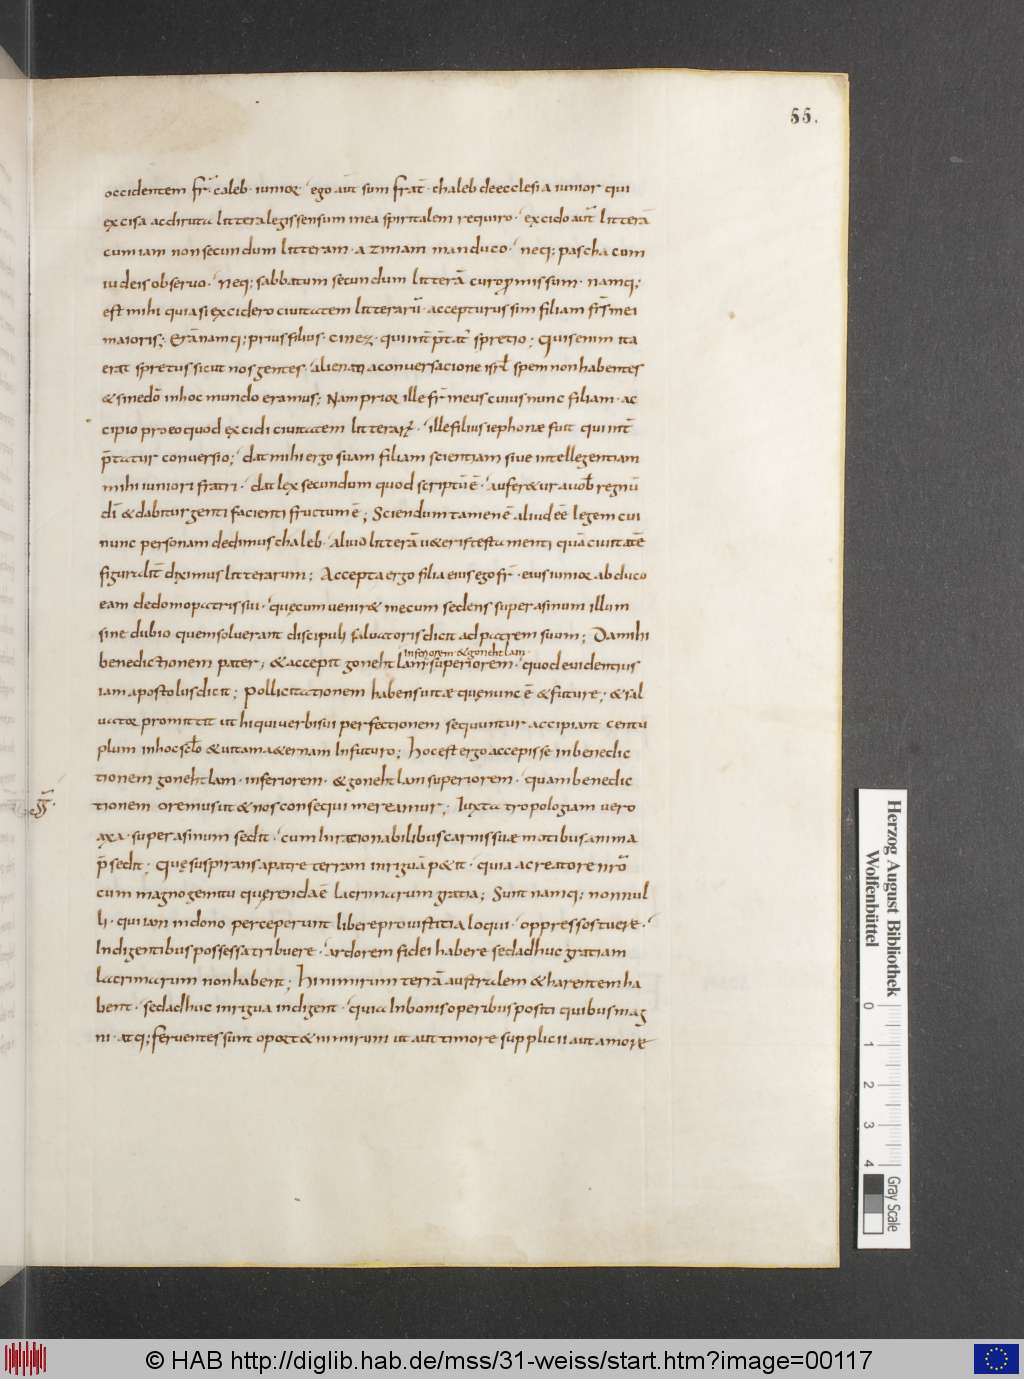 55.
occidentem fr̄. caleb. iunior. ego aut̄ sum frat̄. chaleb deecclesia iunior qui
excisa acdiruta litteralegissensum inea spiritalem requiro. excido aut̄ litterā
cumiam nonsecundum litteram. azimam manduco. neq; pascha cum
iudeis obseruo. Neq; sabbatum secundum litterā curo promissum. namq;
est mihi quiasi excidero ciuitatem litterarū. accepturussim filiam fr̄ismei
maioris; Erānamq; prius filius. cinez. qui int̄p̄tat̄ spretio; Quisenim ita
erat spretus sicut nosgentes. alienati aconuersacione isrl̄ spem nonhabentes
& sinedō inhoc mundo eramus; Nam prior ille fr̄ meus cuius nunc filiam. ac
cipio proeoquod excidi ciuitatem litterarū. ille filius iephonæ fuit qui int̄
p̄tatur conuersio; dat mihi ergo suam filiam scientiam siue intellegentiam
mihi iuniori fratri. dat lex secundum quod scriptū ē. aufer&ur auob̄ regnū
dī & dabitur genti facienti fructum ē; Sciendum tamen ē aliud eē legem cui
nunc personam dedimus chaleb. aliud litterā u&eris testamenti quā ciuitatē
figuralit̄ diximus litterarum; Accepta ergo filia eius ego fr̄. eius iunior abduco
eam dedomo patris sui. quęcum uenir& mecum sedens super asinum illum
sine dubio quem soluerant discipuli saluatoris dicit ad patrem suum; Da mihi
inferiorem & gonehtlam
benedictionem pater; & accepit gonehtlam superiorem. quod euidentius
iam apostolus dicit; Pollicitationem habens uitæ quęnunc ē & futurę; & sal
uator promittit ut hi qui uerbi sui perfectionem sequuntur accipiant centu
plum inhoc scl̄o & uitam a&ernam in futuro; Hoc est ergo accepisse inbenedic
tionem gonehtlam. inferiorem. & gonehtlam superiorem. quam benedic
tionem oremus ut & nos consequi mereamur; Iuxta tropologiam uero
axa. super asinum sedit. cum inrationabilibus carnis suæ motibus anima
p̄sedit; Quę suspirans apatre terram inriguā p&it. quia acreatore nr̄o
cum magno gemitu quęrenda ē lacrimarum gratia; Sunt namq; nonnul
li. qui iam in dono perceperunt libere pro iustitia loqui. oppressos tuere.
Indigentibus possessa tribuere. ardorem fidei habere sed adhuc gratiam
lacrimarum non habent; Hi nimirum terrā australem & harentem ha
bent. sed adhuc inrigua indigent. quia Inbonis operibus positi quibus mag
ni. atq; feruentes sunt oport& nimirum ut aut timore supplicii aut amore
Herzog August Bibliothek
Wolfenbüttel
0 1 2 3 4
Gray Scale
© HAB http://diglib.hab.de/mss/31-weiss/start.htm?image=00117